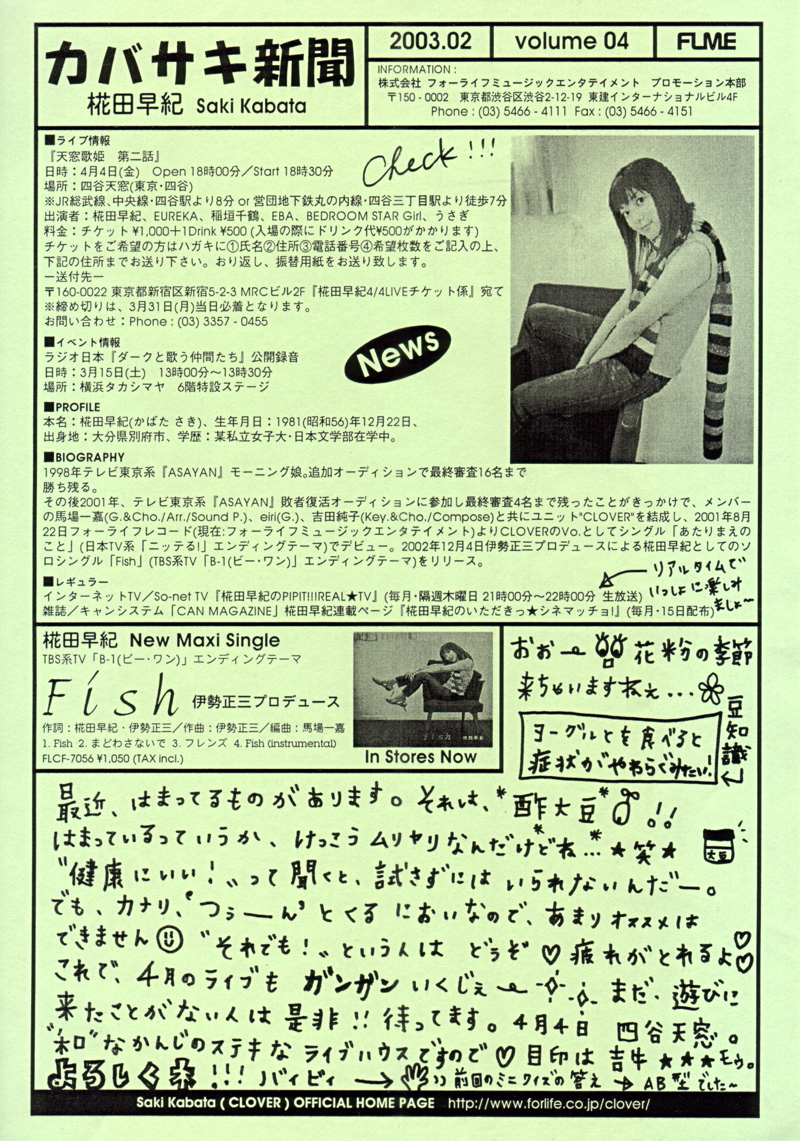 カバサキ新聞
椛田早紀 Saki Kabata
2003.02
volume 04
FLME
INFORMATION :
株式会社 フォーライフミュージックエンタテイメント プロモーション本部
〒150 - 0002 東京都渋谷区渋谷2-12-19 東建インターナショナルビル4F
Phone : (03) 5466 - 4111 Fax : (03) 5466 - 4151
■ライブ情報
『天窓歌姫 第二話』
日時：4月4日(金) Open 18時00分／Start 18時30分
場所：四谷天窓(東京･四谷)
※JR総武線､中央線･四谷駅より8分 or 営団地下鉄丸の内線･四谷三丁目駅より徒歩7分
出演者：椛田早紀、EUREKA、稲垣千鶴、EBA、BEDROOM STAR Girl、うさぎ
料金：チケット¥1,000＋1Drink ¥500 (入場の際にドリンク代¥500がかかります)
チケットをご希望の方はハガキに①氏名②住所③電話番号④希望枚数をご記入の上、
下記の住所までお送り下さい。おり返し、振替用紙をお送り致します。
ー送付先ー
〒160-0022 東京都新宿区新宿5-2-3 MRCビル2F『椛田早紀4/4LIVEチケット係』宛て
※締め切りは、3月31日(月)当日必着となります。
お問い合わせ：Phone : (03) 3357 - 0455
Check !!!
■イベント情報
ラジオ日本『ダークと歌う仲間たち』公開録音
日時：3月15日(土) 13時00分〜13時30分
場所：横浜タカシマヤ 6階特設ステージ
News
■PROFILE
本名：椛田早紀(かばた さき)、生年月日：1981(昭和56)年12月22日、
出身地：大分県別府市、学歴：某私立女子大･日本文学部在学中。
■BIOGRAPHY
1998年テレビ東京系『ASAYAN』モーニング娘｡追加オーディションで最終審査16名まで
勝ち残る。
その後2001年、テレビ東京系『ASAYAN』敗者復活オーディションに参加し最終審査4名まで残ったことがきっかけで、メンバー
の馬場一嘉(G.&Cho./Arr./Sound P.)、eiri(G.)、吉田純子(Key.&Cho./Compose)と共にユニット"CLOVER"を結成し、2001年8月
22日フォーライフレコード(現在:フォーライフミュージックエンタテイメント)よりCLOVERのVo.としてシングル「あたりまえの
こと」(日本TV系「ニッテる!」エンディングテーマ)でデビュー。2002年12月4日伊勢正三プロデュースによる椛田早紀としてのソ
ロシングル「Fish」(TBS系TV「B-1(ビー･ワン)」エンディングテーマ)をリリース。
■レギュラー
インターネットTV／So-net TV『椛田早紀のPIPIT!!!REAL★TV』(毎月･隔週木曜日 21時00分〜22時00分 生放送)
雑誌／キャンシステム「CAN MAGAZINE」椛田早紀連載ページ『椛田早紀のいただきっ★シネマッチョ!』(毎月･15日配布)
リアルタイムで
いっしょに楽しみ
ましょ〜
椛田早紀 New Maxi Single
TBS系TV「B-1(ビー･ワン)」エンディングテーマ
Fish 伊勢正三プロデュース
作詞：椛田早紀・伊勢正三／作曲：伊勢正三／編曲：馬場一嘉
1. Fish 2. まどわさないで 3. フレンズ 4. Fish (instrumental)
FLCF-7056 ¥1,050 (TAX incl.)
Fish 椛田早紀
In Stores Now
おおー 花粉の季節
来ちゃいますねぇ...
豆知識
ヨーグルトを食べると
症状がやわらぐみたい!
最近、はまってるものがあります。それは、*酢大豆*!!
はまっているっていうか、けっこうムリヤリなんだけどね...★笑★
大豆
"健康にいい!"って聞くと、試さずにはいられないんだー。
でも、カナリ、'つぅーん'とくるにおいなので、あまりオススメは
できません "それでも!"という人は どうぞ ♡ 疲れがとれるよ♡♡
これで、4月のライブも ガンガン いくじぇー まだ、遊びに
来たことがない人は 是非!! 待ってます。4月4日 四谷天窓。
"和"なかんじのステキなライブハウスですので♡目印は吉牛★★★モゥ。
よろしくネ!!! バイビィ → 前回のミニクイズの答え → AB型でした〜
Saki Kabata ( CLOVER ) OFFICIAL HOME PAGE http://www.forlife.co.jp/clover/